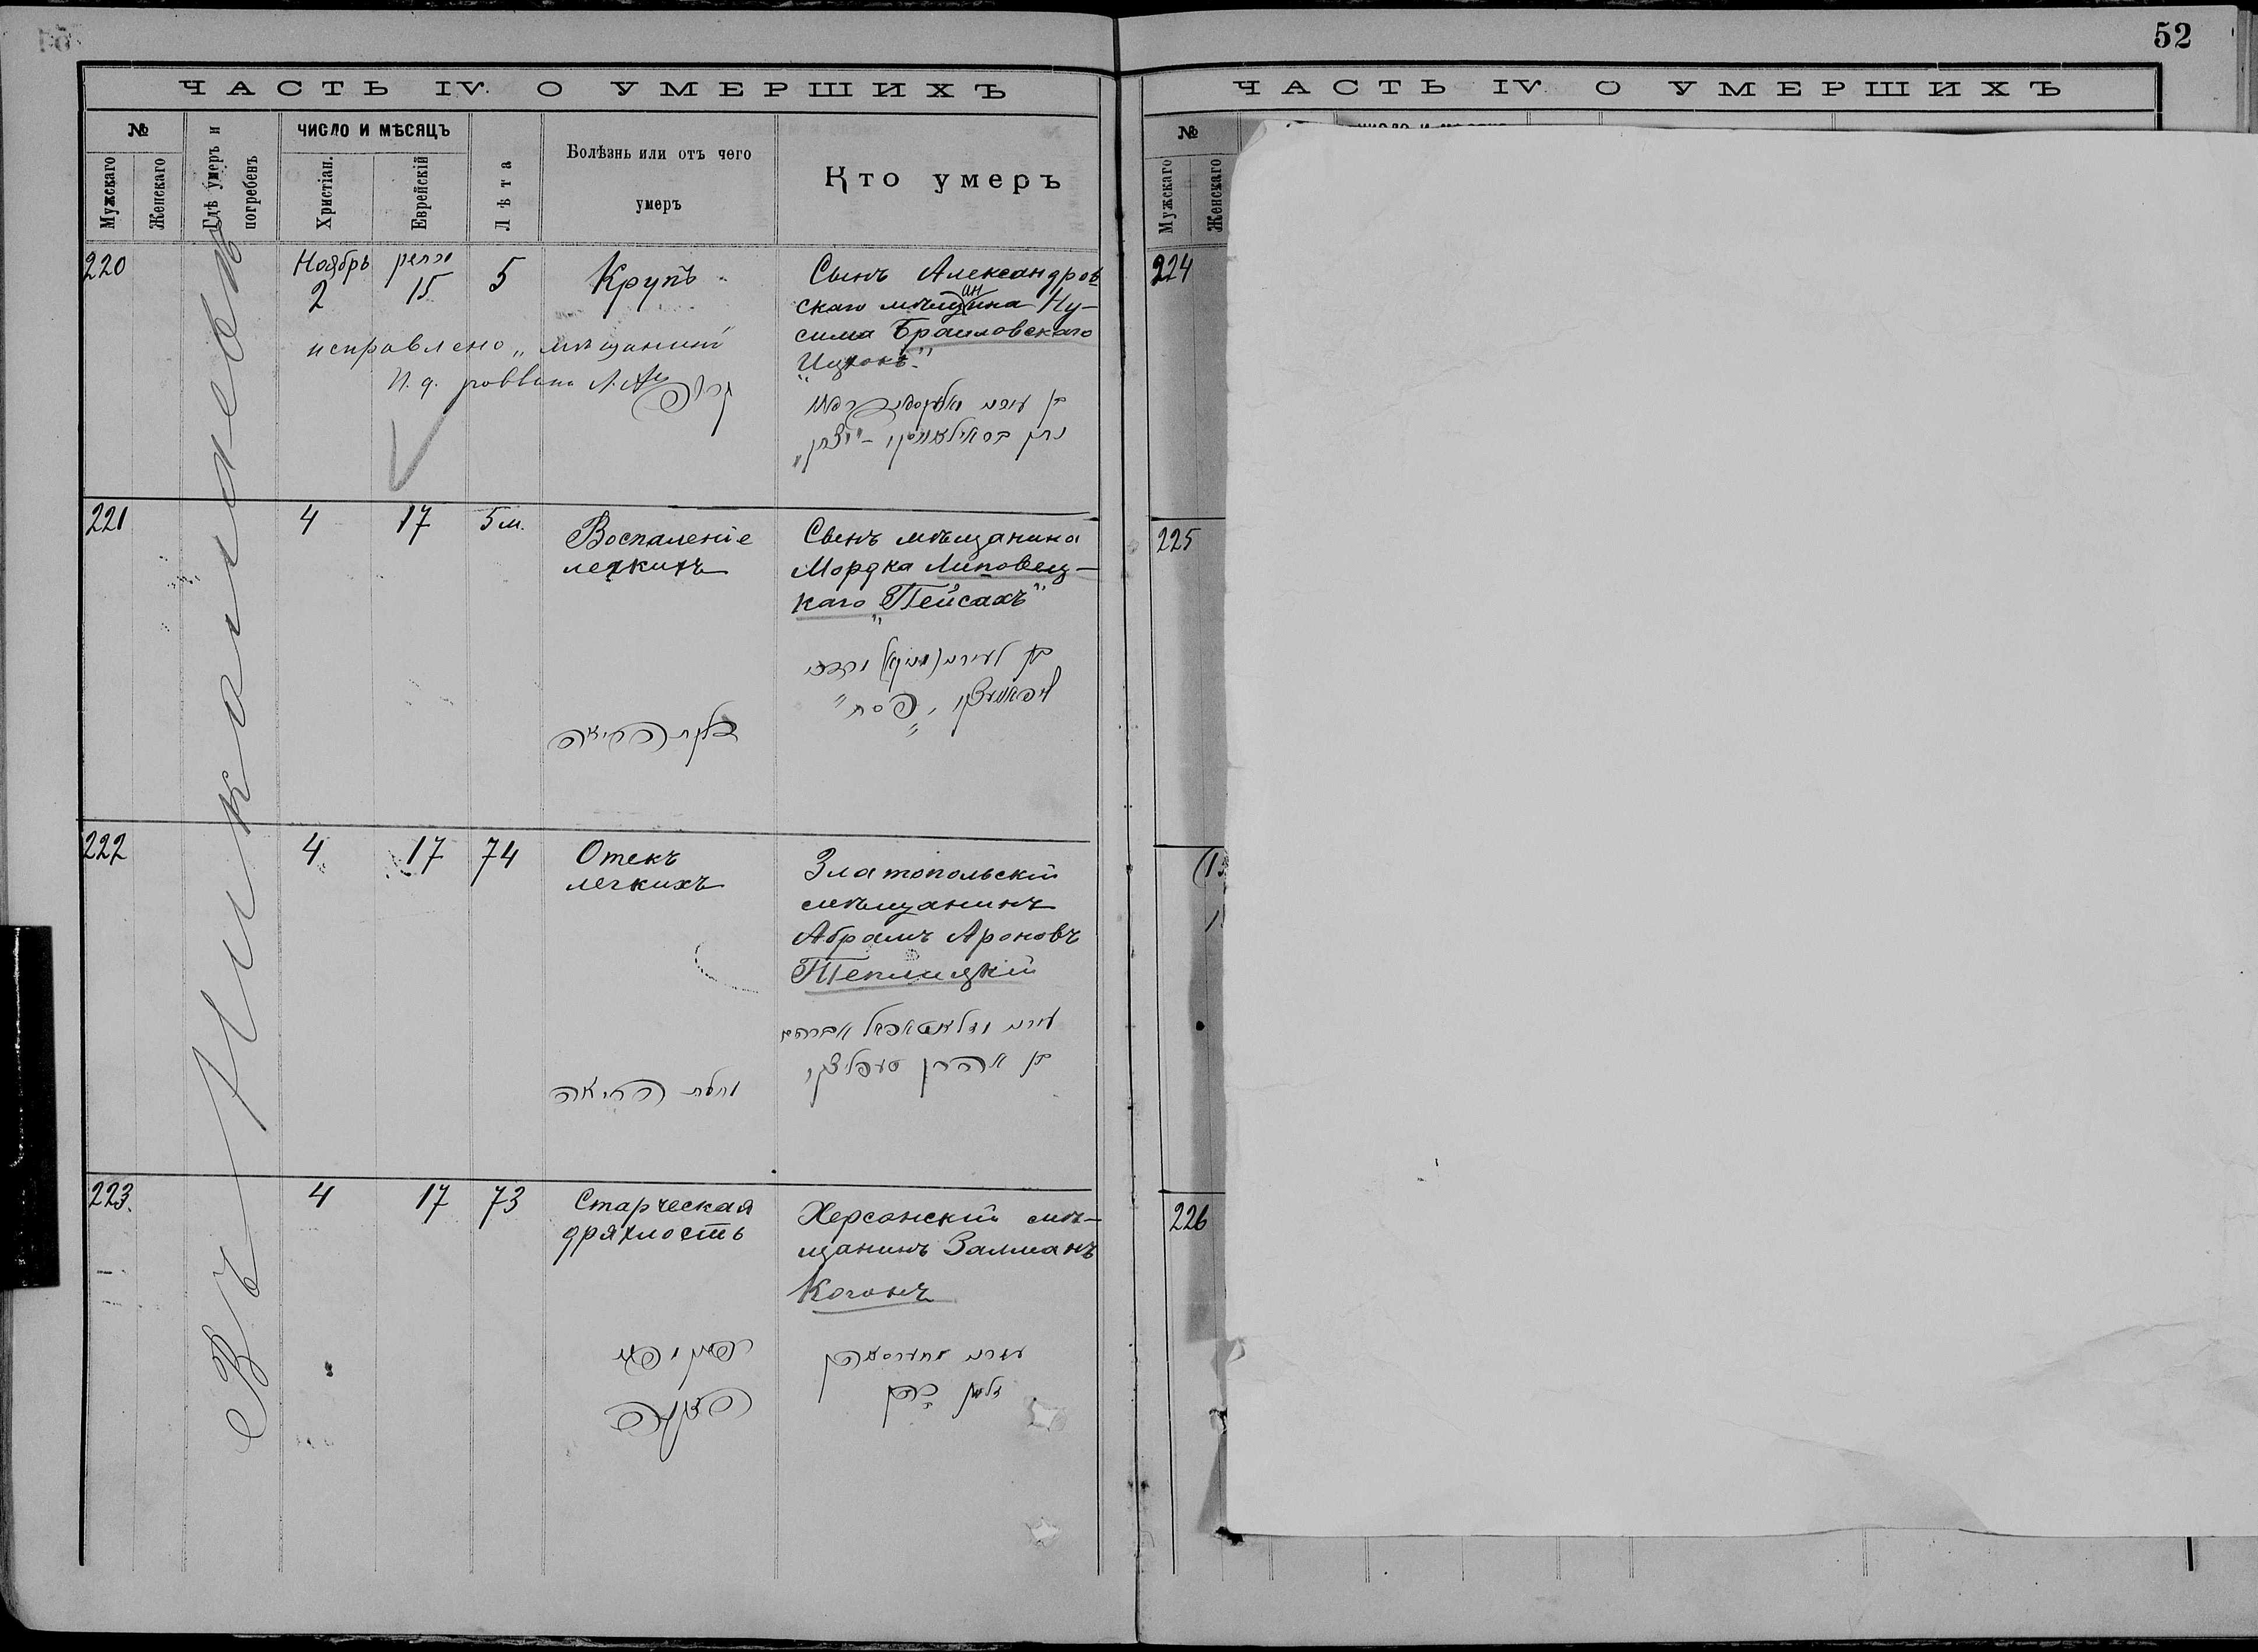 52
ЧАСТЬ IV. О УМЕРШИХЪ
№
Мужскаго
Женскаго
Гдѣ умеръ и погребенъ
ЧИСЛО И МѢСЯЦЪ
Христіан.
Еврейскій
Лѣта
Болѣзнь или отъ чего
умеръ
Кто умеръ
Въ Николаевѣ
220
Ноябрь
2
15
5
Крупъ
Сынъ Александров
скаго мѣщанина Ну-
сима Браиловскаго
"Ицхокъ"
исправлено „мѣщанин"
И. д. раввина
221
4
17
5 м.
Воспаленіе
легкихъ
Сынъ мѣщанина
Мордка Липовец-
каго „Пейсахъ"
בן
„פסח"
דלקת הריאה
222
4
17
74
Отекъ
легкихъ
Златопольскій
мѣщанинъ
Абрамъ Ароновъ
Теплицкій
אברהם
בן אהרן טעפליצקי
הריאה
223.
4
17
73
Старческая
дряхлость
Херсонскій мѣ-
щанинъ Залманъ
Коганъ
זלמן כהן
הזקנה
ЧАСТЬ IV. О УМЕРШИХЪ
№
Мужскаго
Женскаго
224
225
226